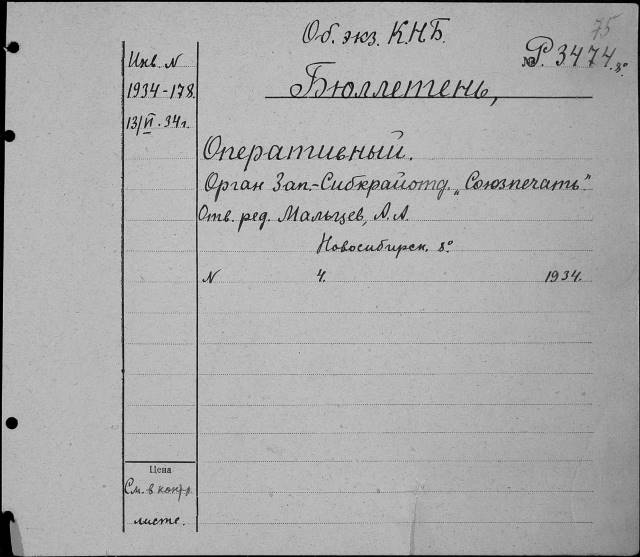 75
Об. экз. КНБ.
№ Р. 3474. 8°
Инв. N
1934-178.
13/VI. 34 г.
Бюллетень,
Оперативный.
Орган Зап.-Сибкрайотд. „Союзпечать".
Отв. ред. Мальцев, А. А.
Новосибирск. 8°.
N 4. 1934.
Цена
См. в контр.
листе.